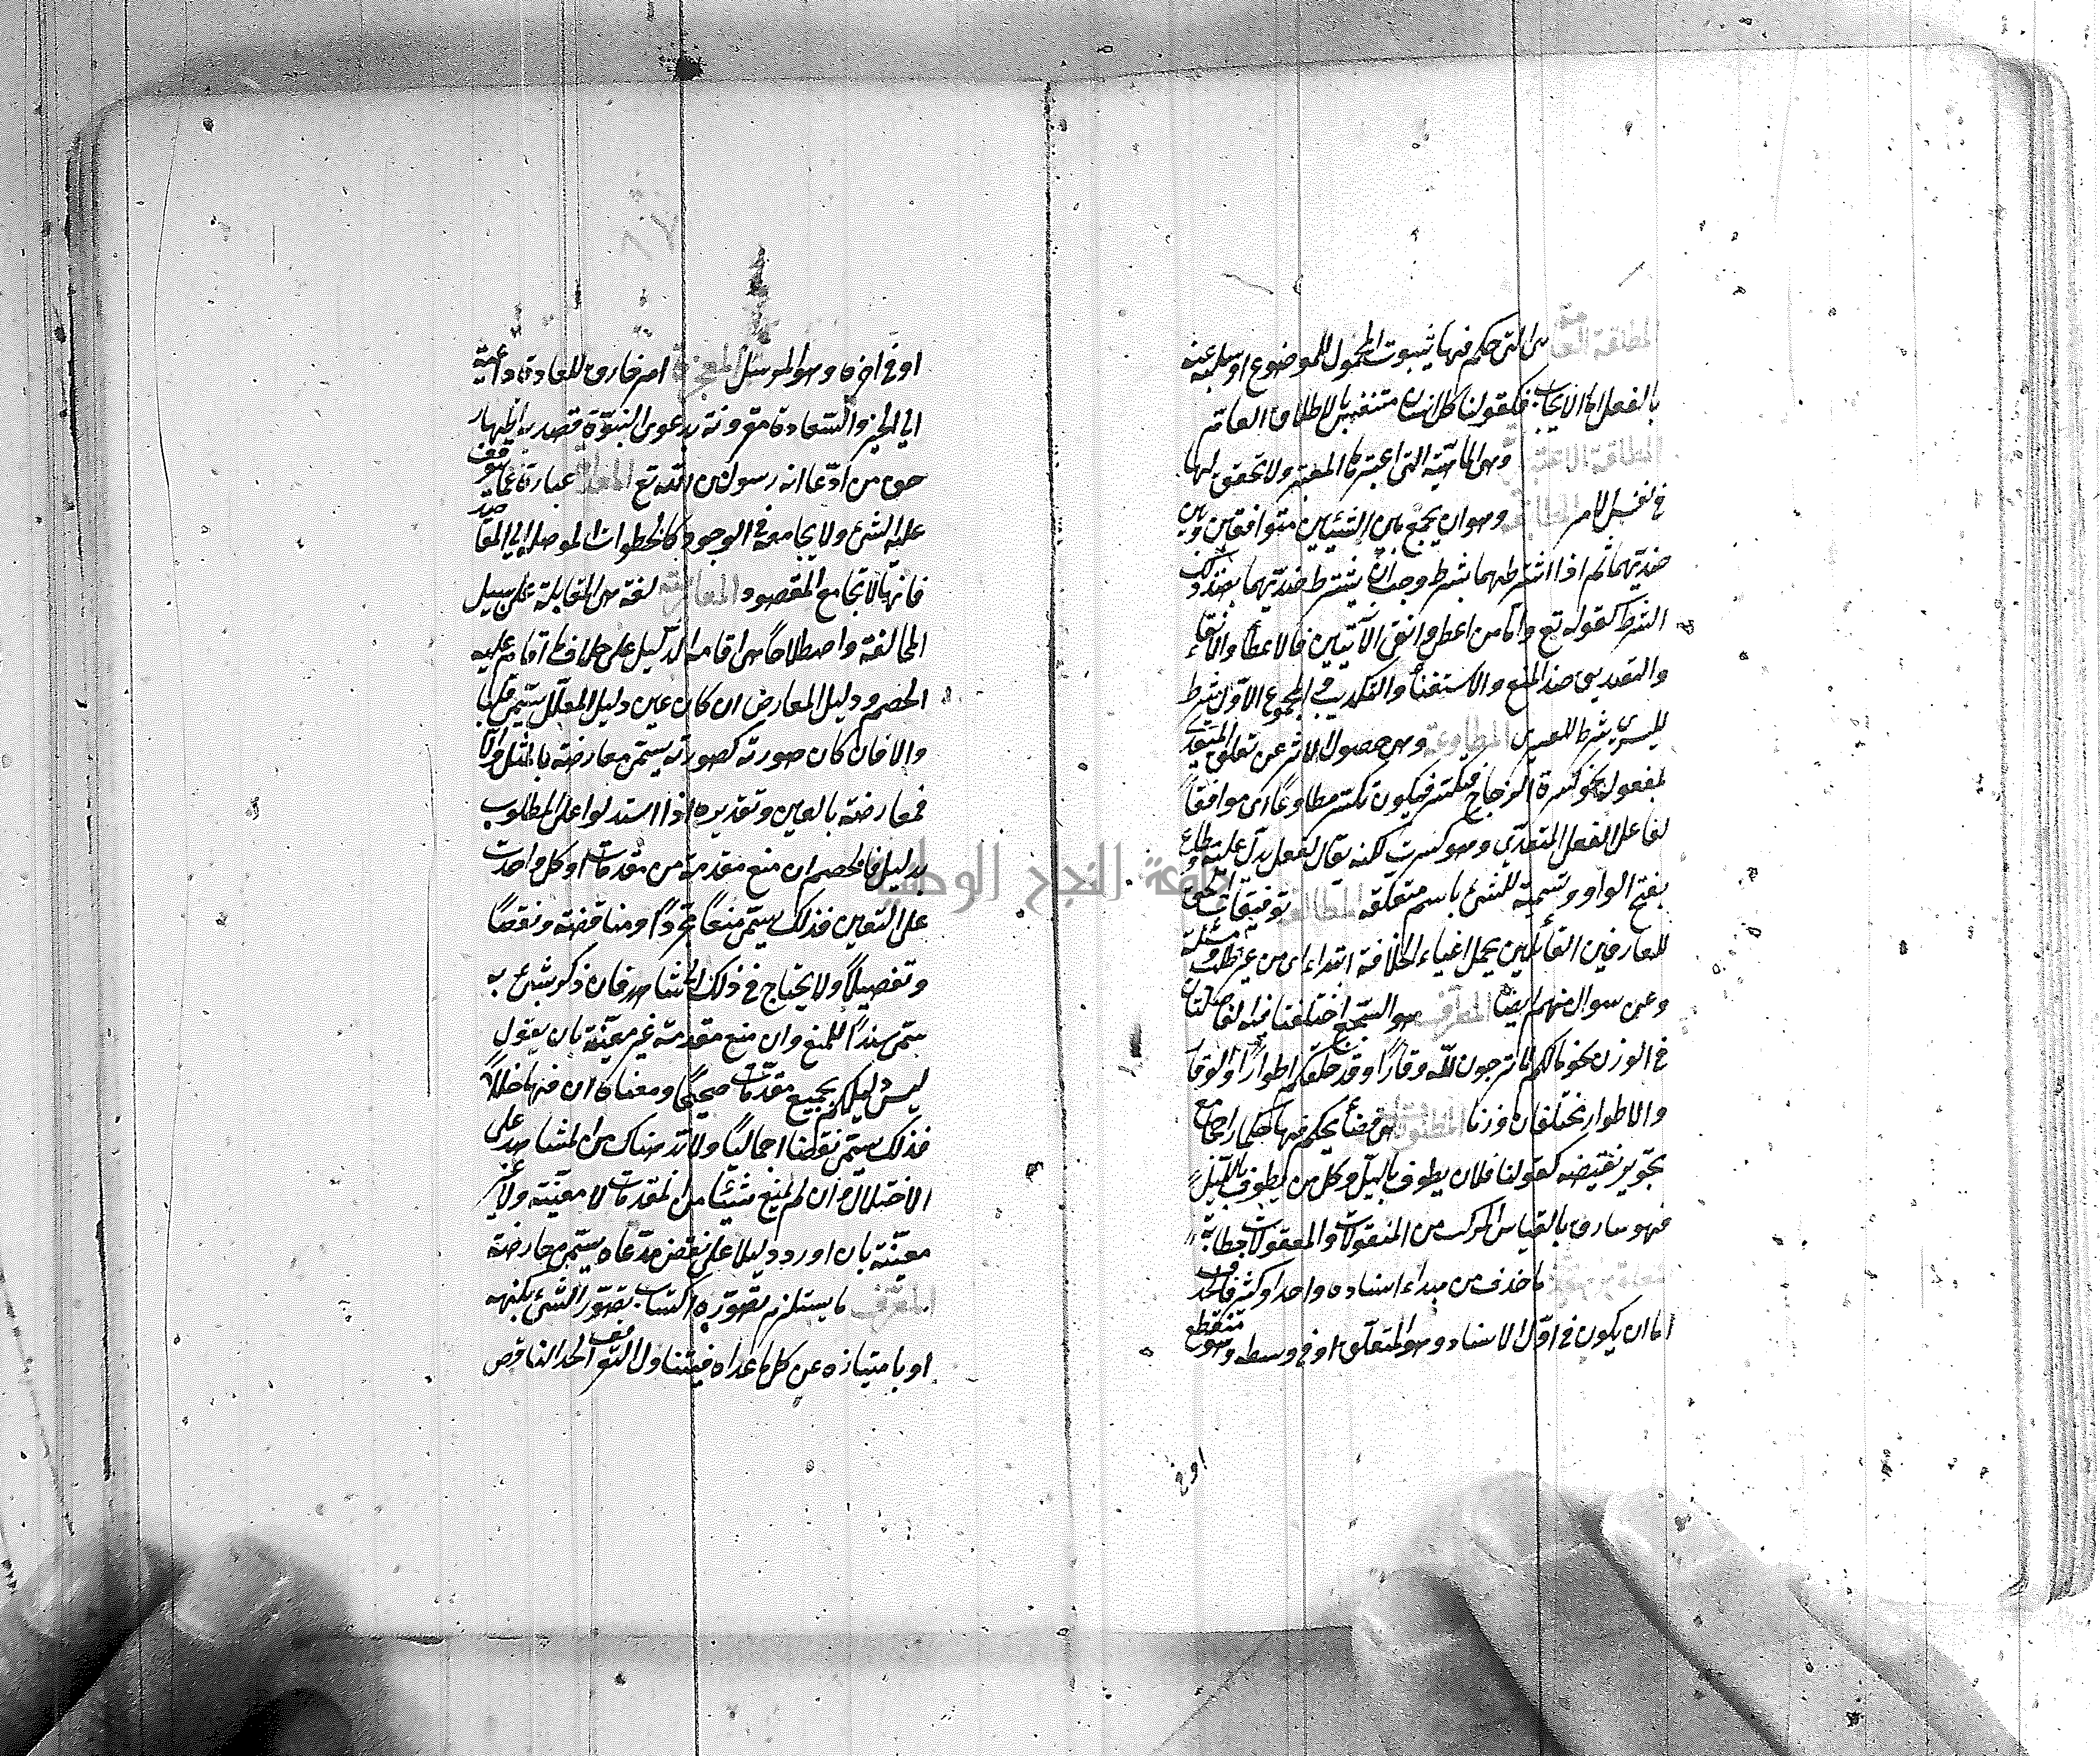 المطلقة العامة هى التى حكم فيها بثبوت المحمول للموضوع او سلبه عنه
بالفعل اما الايجاب فكقولنا كل انسان متنفس بالاطلاق العام
المطلقة الاعتبارية وهى الماهية التى اعتبرها المعتبر ولا تحقق لها
فى نفس الامر المطابقة وهو ان يجمع بين الشيئين متوافقين وبين
ضديهما ثم اذا اشترطهما بشرط وجب ان يشترط ضديهما بضد ذلك
الشرط كقوله تع فاما من اعطى واتقى الآيتين فالاعطاء والاتقاء
والتصديق ضد المنع والاستغناء والتكذيب فى المجموع الاول شرط
لليسرى شرط للعسرى المطاوعة وهى حصول الاثر عن تعلق المتعدى
بمفعوله نحو كسرت الزجاج فتكسر فيكون تكسر مطاوعا اى موافقا
لفاعل الفعل المتعدى وهو كسرت لكنه يقال لفعل يدل عليه مطاوع
بفتح الواو وتسمية للشئ باسم متعلقه المطالعة توفيقات الحق
للعارفين القائمين بحمل اعباء الخلافة ابتداء اى من غير طلب ومسئلة
وعن سوال منهم ايضا المطرف هو السجع اختلفتا فيه الفاصلتان
فى الوزن نحو مالكم لا ترجون لله وقارا وقد خلقكم اطوارا فالوقار
والاطوار مختلفان وزنا المظنونات هى قضايا يحكم فيها حكما راجحا مع
تجويز نقيضه كقولنا فلان يطوف بالليل وكل من يطوف بالليل
فهو سارق بالقياس المركب من المنقولات والمعقولات خطابة
ما حذف من مبداء اسناده واحد او كثر فالحذف
اما ان يكون فى اول الاسناد وهو المتعلق او فى وسطه وهو منقطع
او فى
او فى اخره وهو المرسل المعجزة امر خارق للعادة داعية
الى الخير والسعادة مقرونة بدعوى النبوة قصد به اظهار
صدق من ادعا انه رسول من الله تع المعدات عبارة عما يتوقف
عليه الشئ ولا يجامعه فى الوجود كالخطوات الموصلة الى المقاصد
فانها لا تجامع المقصود المعارضة لغة هى المقابلة على سبيل
المخالفة واصطلاحا هى اقامة الدليل على خلاف ما اقام عليه
الخصم ودليل المعارض ان كان عين دليل المعلل يسمى قلبا
والا فان كان صورته كصورته يسمى معارضة بالمثل والا
فمعارضة بالعين وتقديره اذا استدلوا على المطلوب
بدليل فالخصم ان منع مقدمة من مقدماته او كل واحدة
على التعين فذلك يسمى منعا مجردا ومناقضة ونقضا
وتفصيلا ولا يحتاج فى ذلك الى شاهد فان ذكر شئ به
يسمى سندا للمنع وان منع مقدمة غير معينة بان يقول
ليس دليلكم بجميع مقدماته صحيحا ومعناه ان فيها خللا
فذلك يسمى نقضا اجماليا ولا بد هناك من الشاهد على
الاختلال وان لم يمنع شيئا من المقدمات لا معينة ولا غير
معينة بان اورد دليلا على نقض مدعاه يسمى معارضة
المعرف ما يستلزم تصوره اكتساب تصور الشئ بكنهه
او بامتيازه عن كل ما عداه فيتناول التعريف الحد الناقص
جامعة النجاح الوطنية